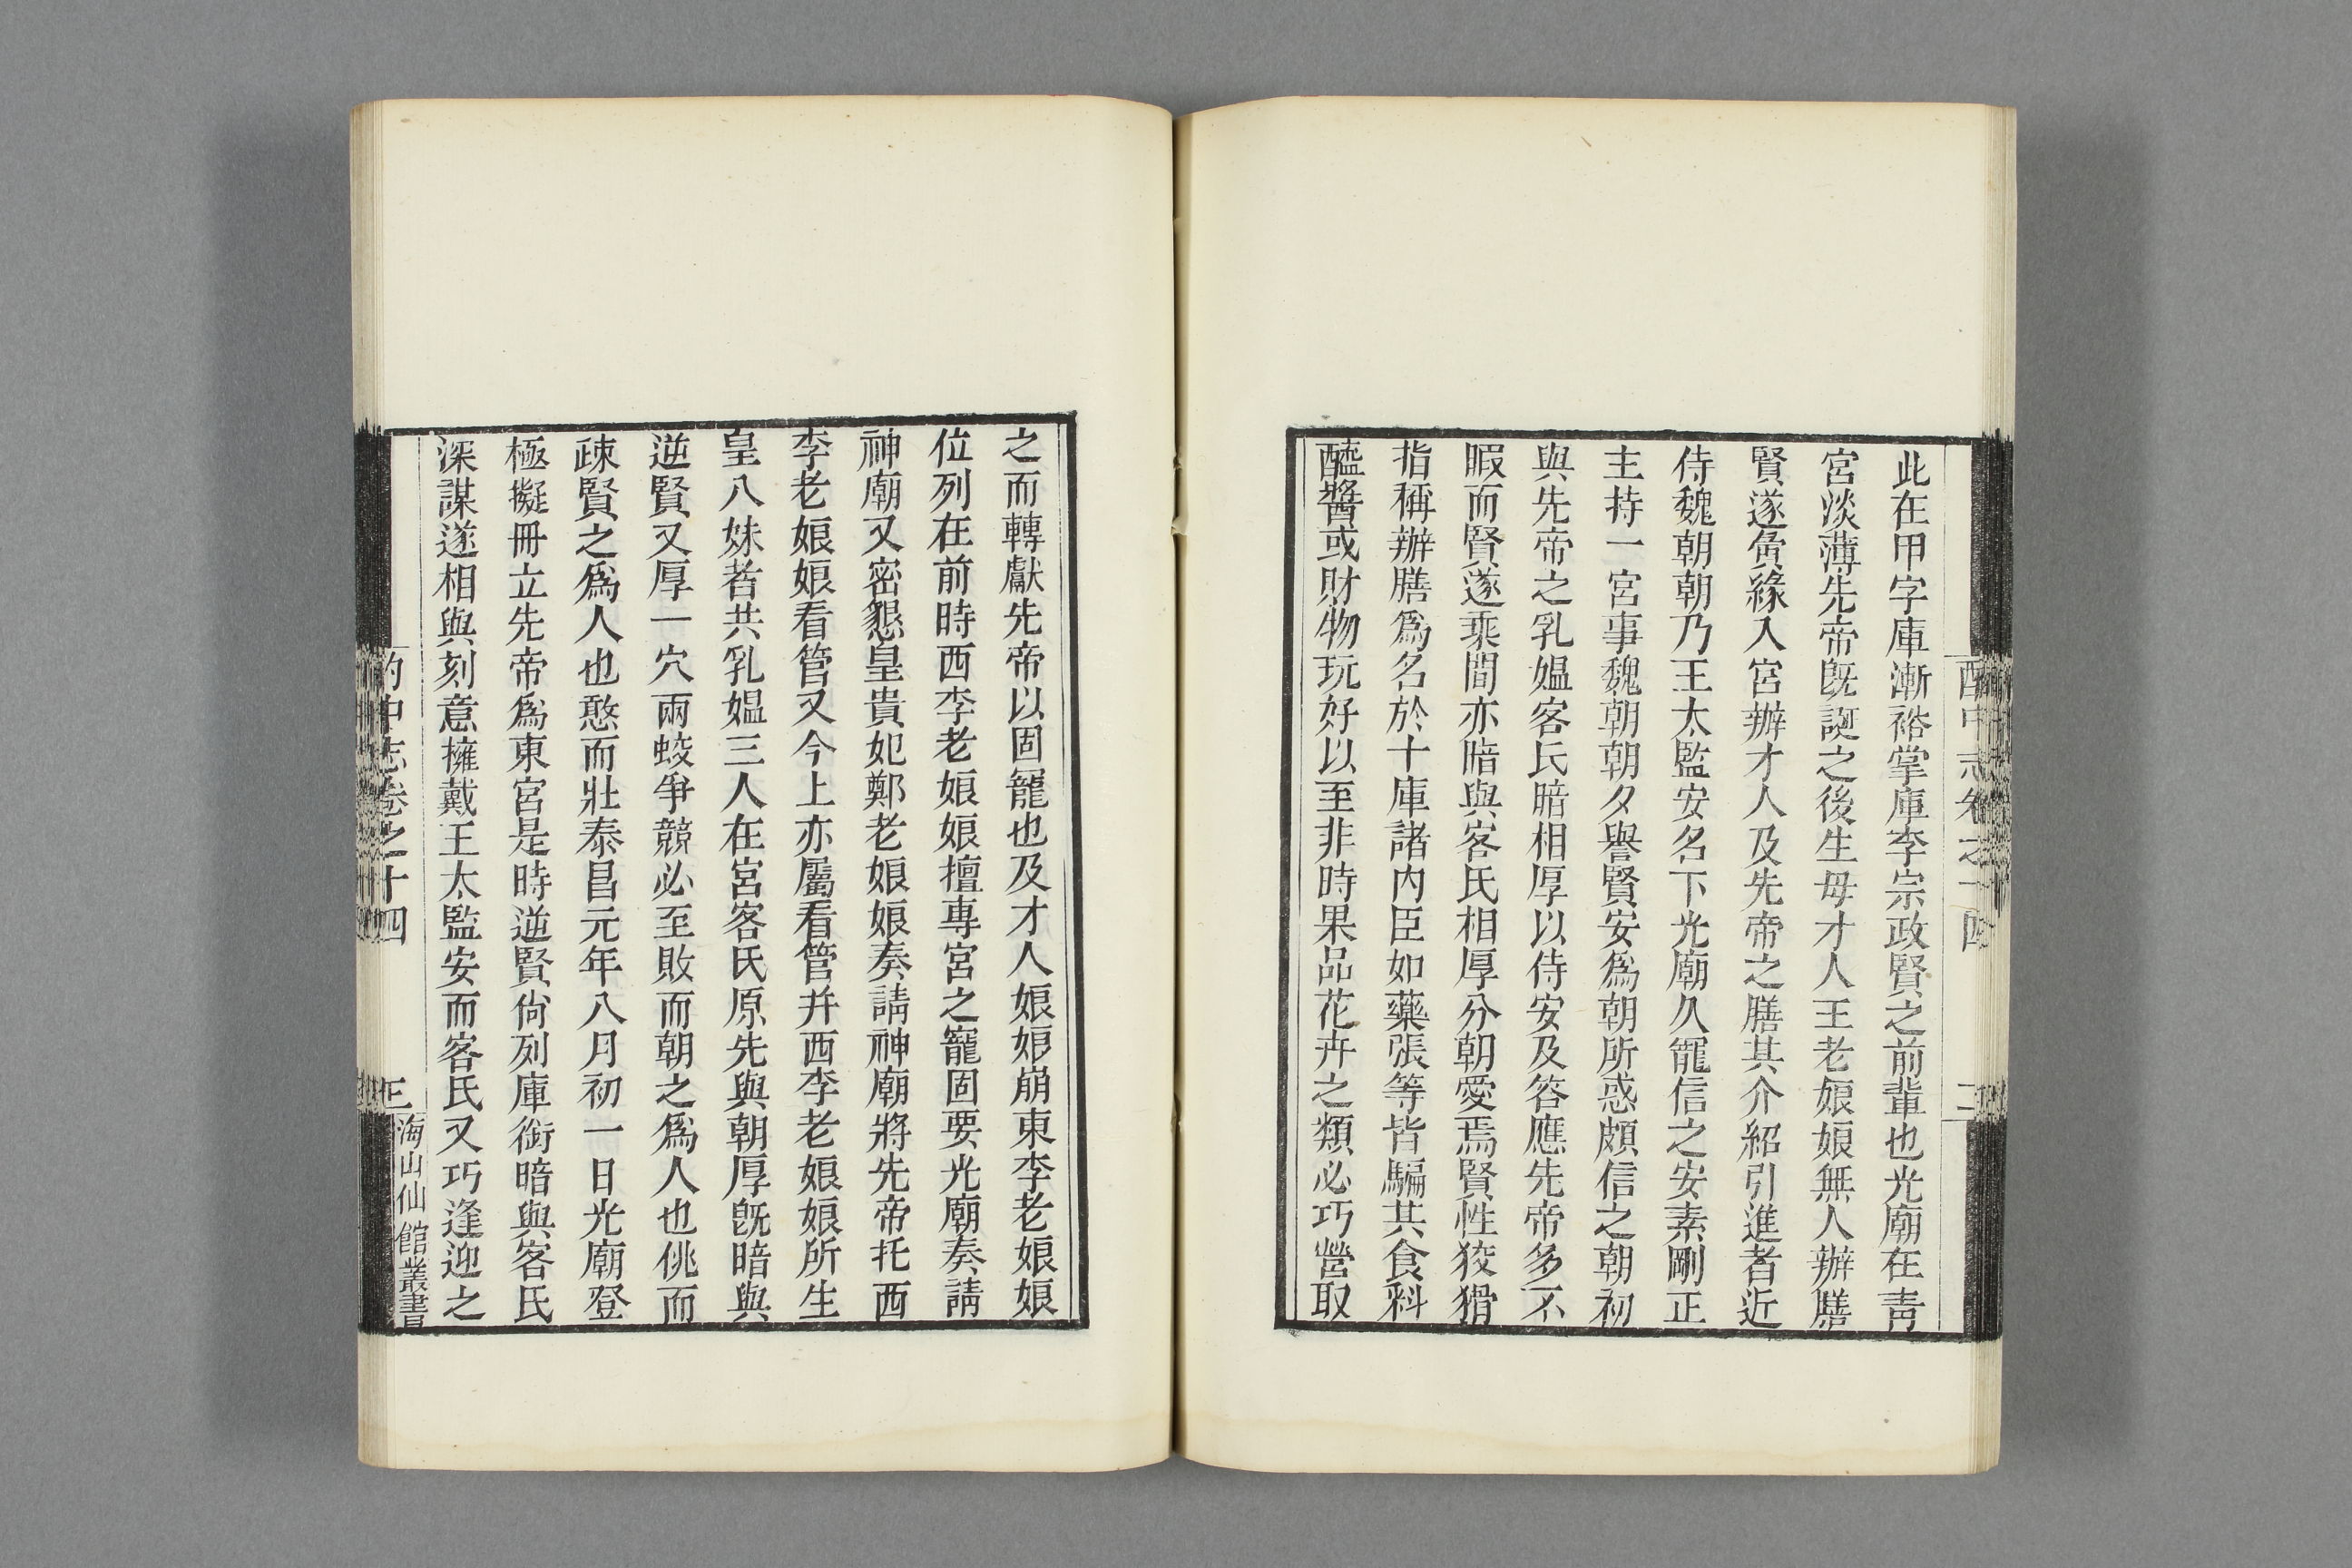 此在甲字庫漸裕掌庫李宗政賢之前輩也光廟在靑
宮淡薄先帝旣誕之後生母才人王老娘娘無人辦膳
賢遂夤緣入宮辦才人及先帝之膳其介紹引進者近
侍魏朝朝乃王太監安名下光廟久寵信之安素剛正
主持一宮事魏朝朝夕譽賢安爲朝所惑頗信之朝初
與先帝之乳媼客氏暗相厚以侍安及答應先帝多不
暇而賢遂乘間亦暗與客氏相厚分朝愛焉賢性狡猾
指稱辦膳爲名於十庫諸内臣如藥張等皆騙其食料
醯醬或財物玩好以至非時果品花卉之類必巧營取
之而轉獻先帝以固寵也及才人娘娘崩東李老娘娘
位列在前時西李老娘娘擅專宮之寵固要光廟奏請
神廟又密懇皇貴妃鄭老娘娘奏請神廟將先帝托西
李老娘娘看管又今上亦屬看管并西李老娘娘所生
皇八妹者共乳媼三人在宮客氏原先與朝厚旣暗與
逆賢又厚一穴兩蛟爭競必至敗而朝之爲人也佻而
疎賢之爲人也憨而壯泰昌元年八月初一日光廟登
極擬冊立先帝爲東宮是時逆賢尙列庫銜暗與客氏
深謀遂相與刻意擁戴王太監安而客氏又巧逢迎之
酌中志卷之十四
三
海山仙館叢書